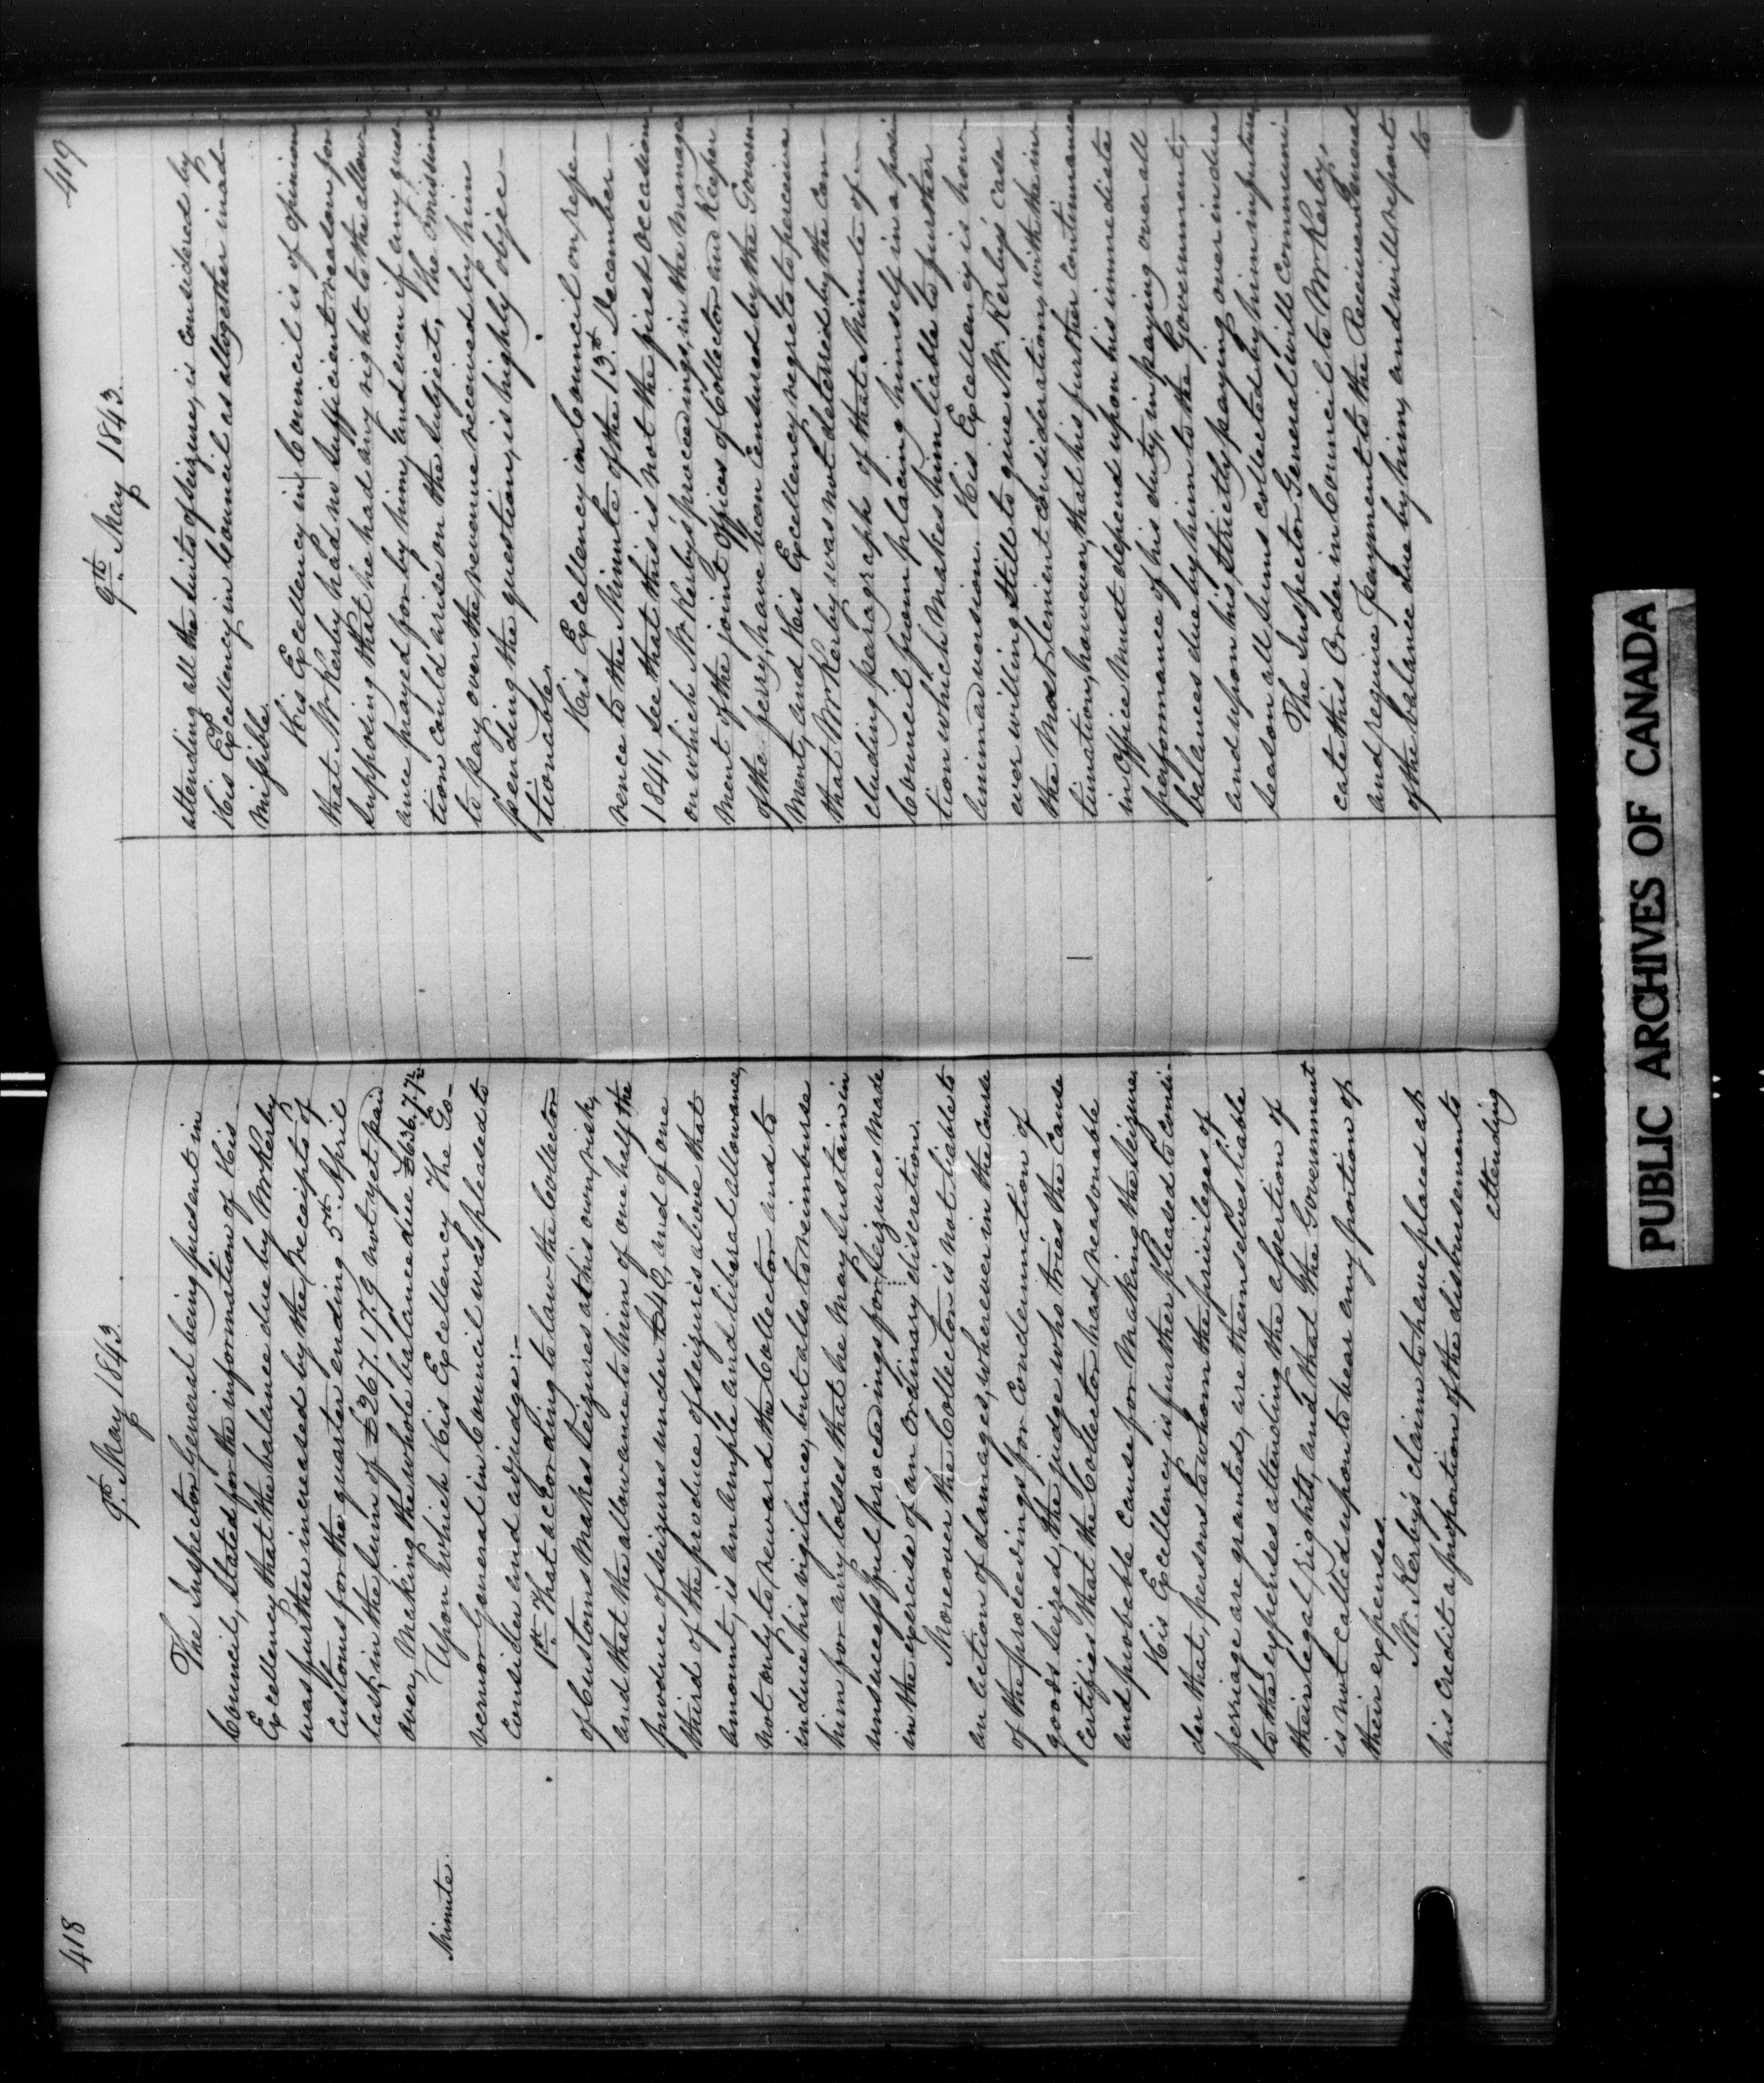 418
9th May 1843.
The Inspector General being present in
Council, stated for the information of His
Excellency that the balance due by Mr Kerby
was further increased by the receipts of
Customs for the quarter ending 5th April
last, in the sum of £267.17.9 not yet paid
over, making the whole balance due £636.7.7½
Minute
Upon which His Excellency The Go-
vernor General in Council was pleased to
consider and adjudge:-
1st That according to law the Collector
of Customs makes seizures at his own risk,
and that the allowance to him of one half the
produce of seizures under £40, and of one
third of the produce of seizures above that
amount, is an ample and liberal allowance,
not only to reward the Collector and to
induce his vigilance, but also to reimburse
him for any losses that he may sustain in
unsuccessful proceedings for seizures made
in the exercise of an ordinary discretion.
Moreover the Collector is not liable to
an action of damages, wherever in the course
of the proceedings for condemnation of
goods seized, the judge who tries the cause
certifies that the Collector had reasonable
and probable cause for making the seizure.
His Excellency is further pleased to consi-
der that, persons to whom the privileges of
ferriage are granted, are themselves liable
to the expenses attending the assertion of
their legal rights, and that the Government
is not called upon to bear any portion of
their expenses.
Mr. Kerby's claim to have placed at
his credit a proportion of the disbursements
attending
419
9th May 1843.
attending all the suits of seizure, is considered by
His Excellency in Council as altogether inad-
missible.
His Excellency in Council is of opinion
that Mr Kerby had no sufficient reason for
supposing that he had any right to the allow-
ance prayed for by him, and even if any ques-
tion could arise on the subject, the omission
to pay over the revenue received by him
pending the question, is highly objec-
tionable.
His Excellency in Council on refe-
rence to the Minute of the 13th December
1841, see that this is not the first occasion
on which Mr Kerby's proceedings, in the manage-
ment of the joint offices of Collector and Keeper
of the ferry, have been censured by the Govern-
ment, and His Excellency regrets to perceive
that Mr Kerby was not deterred by the con-
cluding paragraph of that Minute of
Council from placing himself in a posi-
tion which makes him liable to further
animadversion. His Excellency is how-
ever willing still to give Mr. Kerby's case
the most lenient consideration, with the in-
timation, however, that his further continuance
in office must depend upon his immediate
performance of his duty, in paying over all
balances due by him to the Government,
and upon his strictly paying over in due
season all sums collected by him in future.
The Inspector General will communi-
cate this Order in Council to Mr Kerby,
and require payment to the Receiver General
of the balance due by him, and will report
to
PUBLIC ARCHIVES OF CANADA